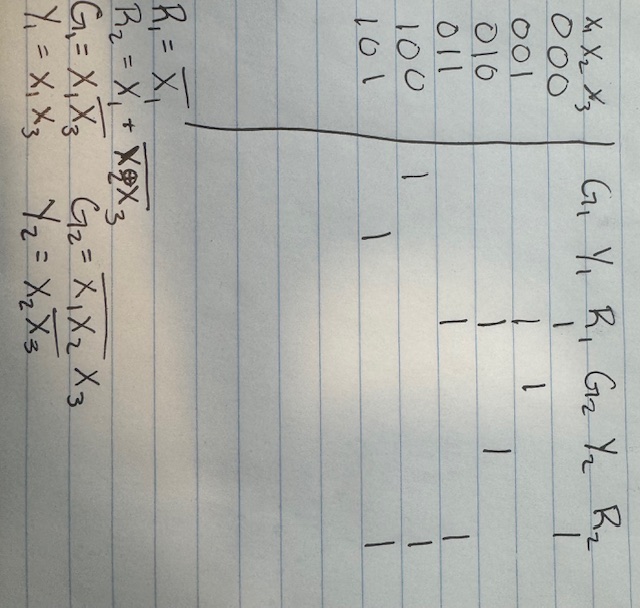 X₁ X₂ X₃ G₁ Y₁ R₁ G₂ Y₂ R₂
000 1 1
001 1 1
010 1 1
011 1 1
100 1 1
101 1 1
R₁ = X̅₁
R₂ = X₁ + X̅₂̅⊕̅X̅₃
G₁ = X₁X̅₃ G₂ = X̅₁̅X̅₂ X₃
Y₁ = X₁X₃ Y₂ = X₂X̅₃